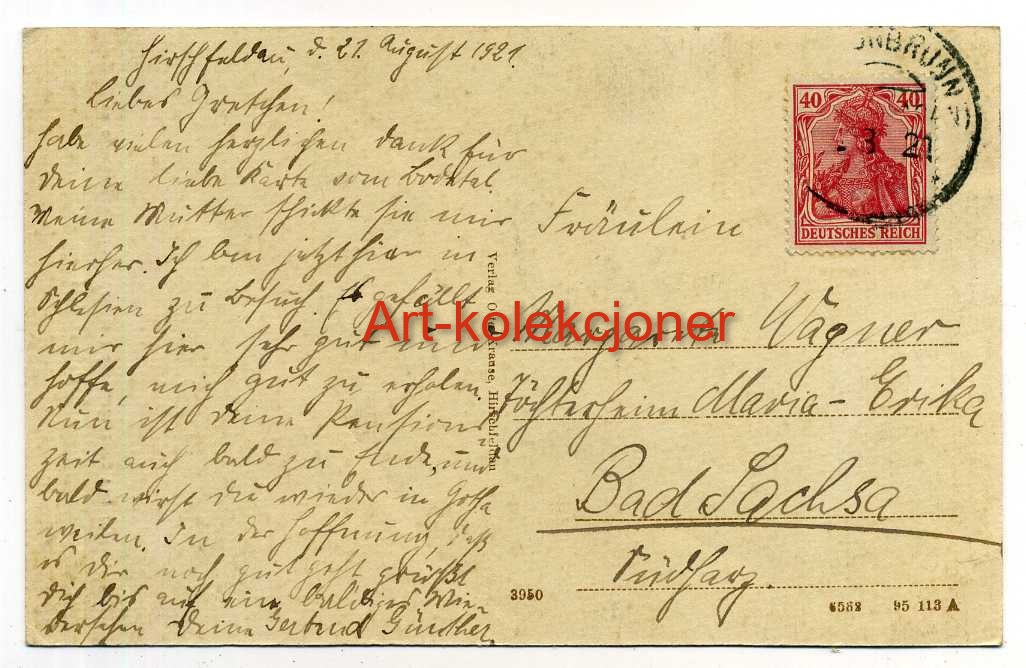 Hirschfeldau, d. 21. August 1921.
Liebes Gretchen!
Habe vielen herzlichen Dank für
Deine liebe Karte vom Bodetal.
Meine Mutter schickte sie mir
hierher. Ich bin jetzt hier in
Schlesien zu Besuch. Es gefällt
mir hier sehr gut und
hoffe, mich gut zu erholen.
Nun ist deine Pensions
zeit auch bald zu Ende, und
bald wirst du wieder in Gotha
weilen. In der Hoffnung, daß
es dir noch gut geht grüßt
dich bis auf ein baldiges Wie-
dersehen Deine Günther.
Verlag Krause, Hirschfeldau
40 40
DEUTSCHES REICH
NBRUNN
21
Fräulein
Wagner
Töchterheim Maria-Erika
Bad Sachsa
Südharz.
3950
6582 95 113 A
Art-kolekcjoner